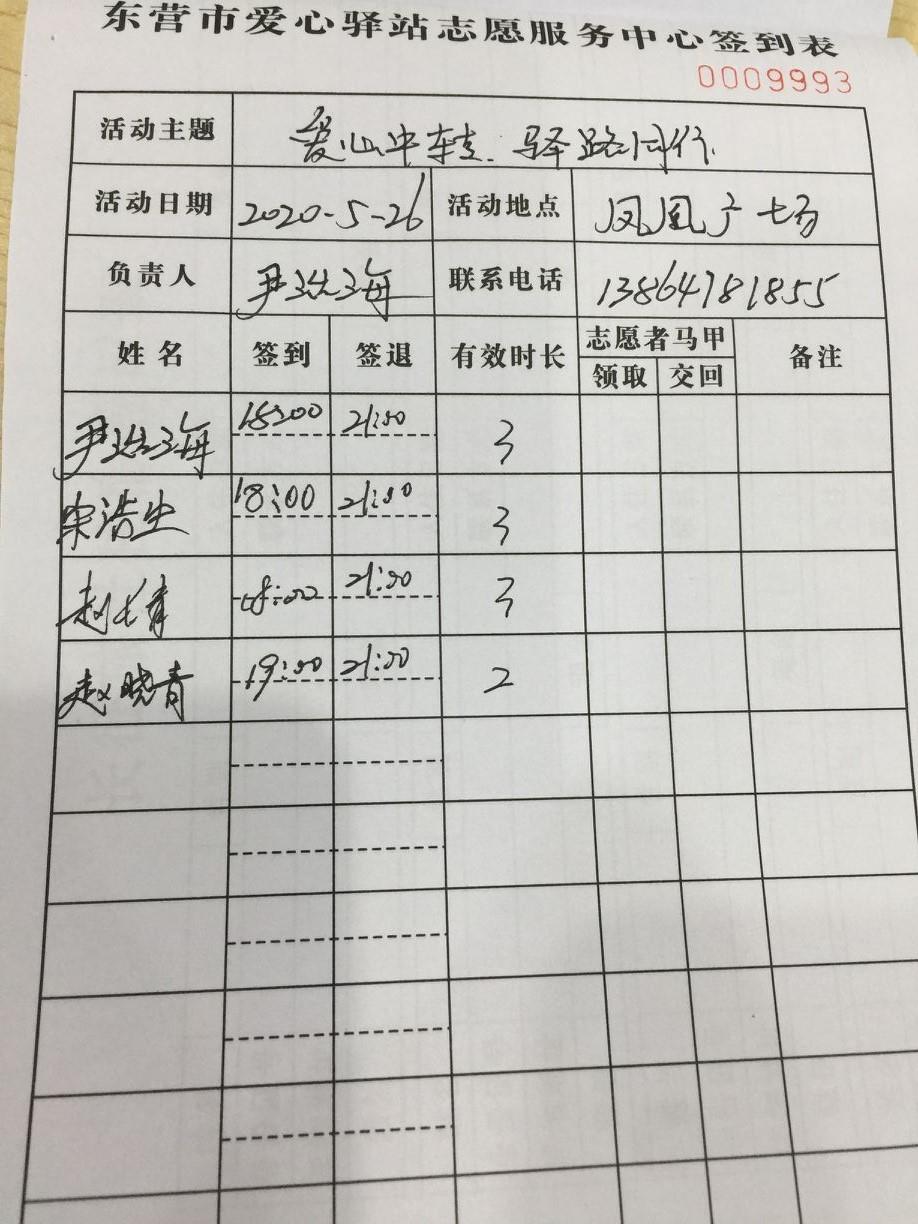 东营市爱心驿站志愿服务中心签到表
0009993
活动主题 爱心中转.驿路同行.
活动日期 2020-5-26 活动地点 凤凰广场
负责人 尹洪海 联系电话 13864781855
姓名 签到 签退 有效时长 志愿者马甲 备注
领取 交回
尹洪海 18:00 21:00 3
宋浩生 18:00 21:00 3
赵长青 18:00 21:00 3
赵晓青 19:00 21:00 2